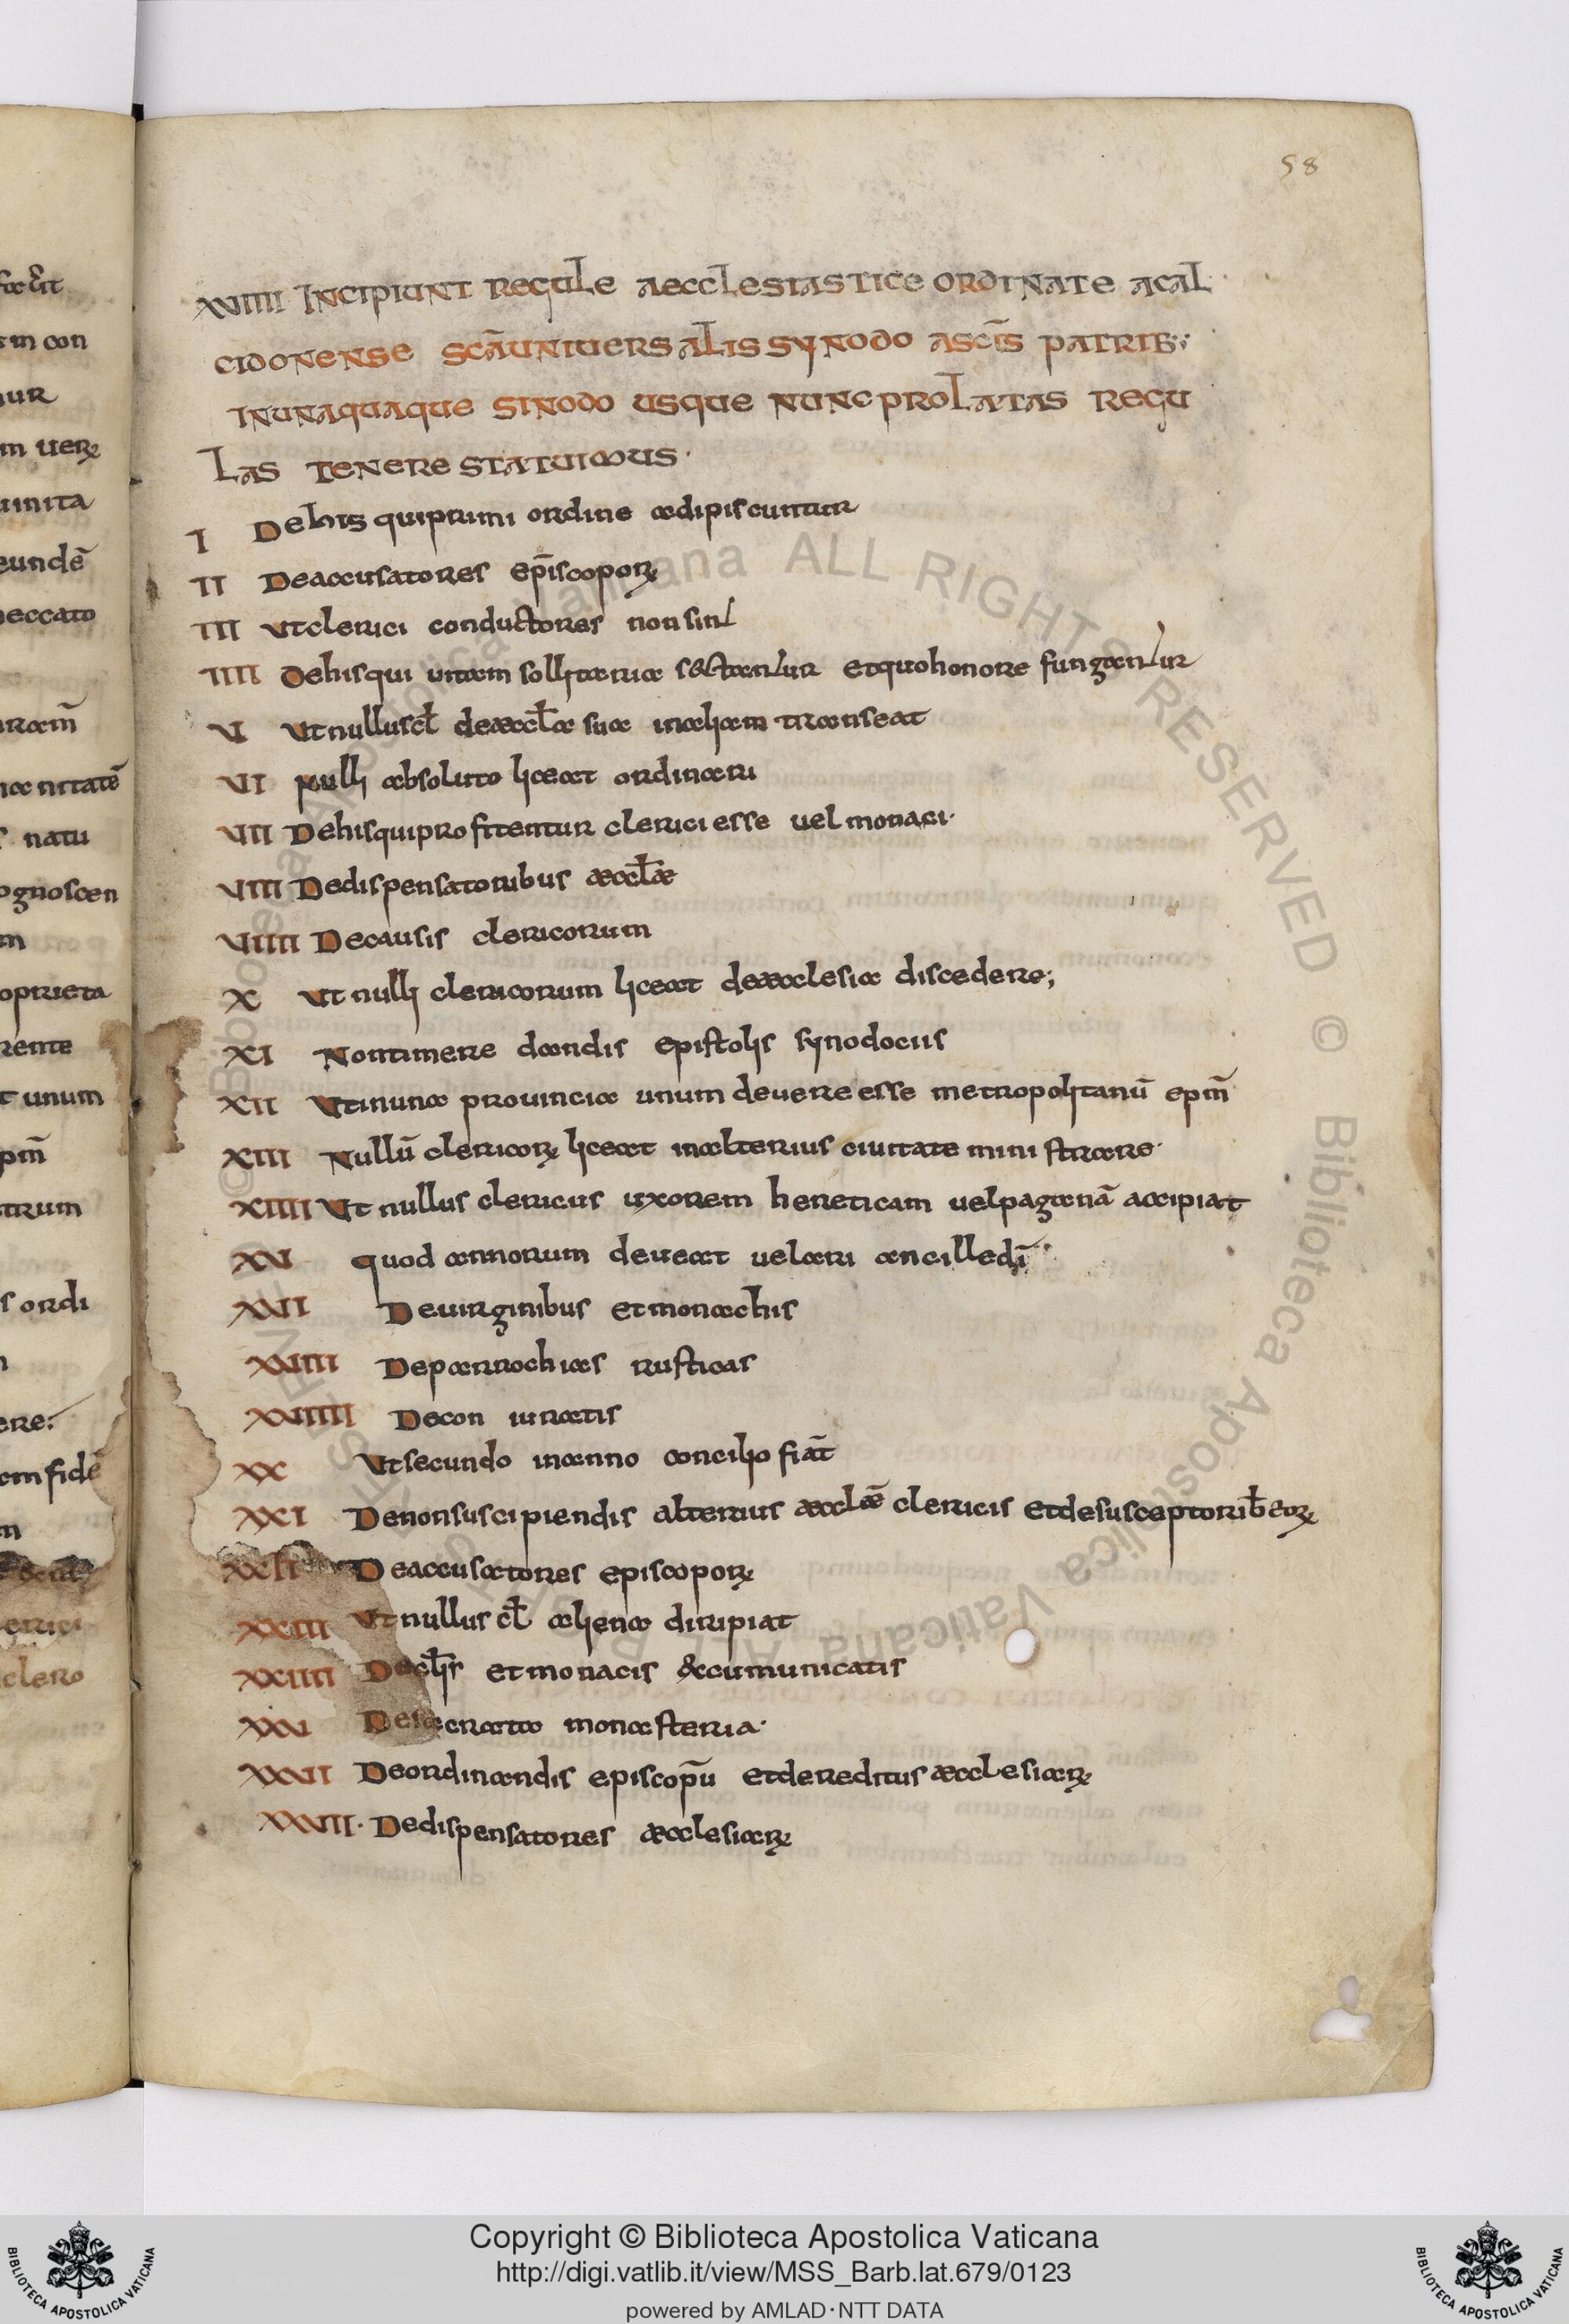 58
XVIIII INCIPIUNT REGULE AECCLESIASTICE ORDINATE A CAL
CIDONENSE SCĀ UNIUERSALIS SYNODO A SCĪS PATRIB;
IN UNAQUAQUE SINODO USQUE NUNC PROLATAS REGU
LAS TENERE STATUIMUS·
I De his qui primi ordine adipiscuntur
II De accusatores ep̄iscopoꝝ
III Ut clerici conductores non sint
IIII De his qui uitam sollitaria sectantur et quo honore fungantur
V Ut nullus cł de aeccła sua in aliam transeat
VI Nulli absoluto liceat ordinari
VII De his qui profitentur clerici esse uel monaci·
VIII De dispensatoribus aeccłae
VIIII De causis clericorum
X Ut nulli clericorum liceat de aecclesia discedere;
XI Non timere dandis epistolis synodociis
XII Ut in una prouincia unum deuere esse metropolitanū epm̄
XIII Nullū clericoꝝ liceat in alterius ciuitate ministrare·
XIIII Ut nullus clericus uxorem hereticam uel paganā accipiat
XV quod annorum deueat uelari ancille dī
XVI De uirginibus et monachis
XVIII De parrochias rusticas
XVIIII De coniuratis
XX Ut secundo in anno concilio fiāt
XXI De non suscipiendis alterius aecclāe clericis et de susceptorib̄ eoꝝ
XXII De accusatores episcopoꝝ
XXIII Ut nullus cł aliena diripiat
XXIIII De cłis et monacis excumunicatis
XXV De sacrata monasteria·
XXVI De ordinandis episcopū et de reditus aecclesiaꝝ
XXVII· De dispensatores aecclesiaꝝ
Copyright © Biblioteca Apostolica Vaticana
http://digi.vatlib.it/view/MSS_Barb.lat.679/0123
powered by AMLAD·NTT DATA